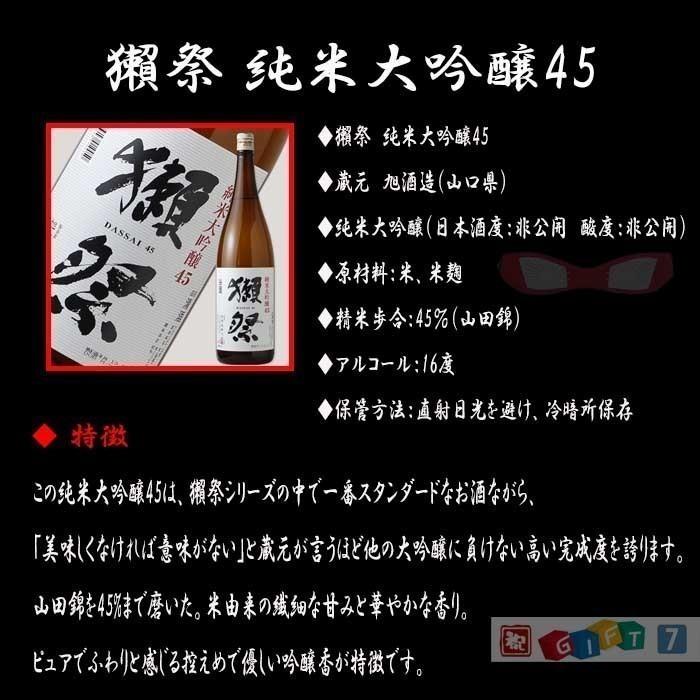 獺祭 純米大吟醸45
◆獺祭 純米大吟醸45
◆蔵元 旭酒造(山口県)
◆純米大吟醸(日本酒度:非公開 酸度:非公開)
◆原材料:米、米麹
◆精米歩合:45%(山田錦)
◆アルコール:16度
◆保管方法:直射日光を避け、冷暗所保存
獺祭
DASSAI 45
純米大吟醸45
獺祭
◆ 特徴
この純米大吟醸45は、獺祭シリーズの中で一番スタンダードなお酒ながら、
「美味しくなければ意味がない」と蔵元が言うほど他の大吟醸に負けない高い完成度を誇ります。
山田錦を45%まで磨いた。米由来の繊細な甘みと華やかな香り。
ピュアでふわりと感じる控えめで優しい吟醸香が特徴です。
祝 GIFT 7